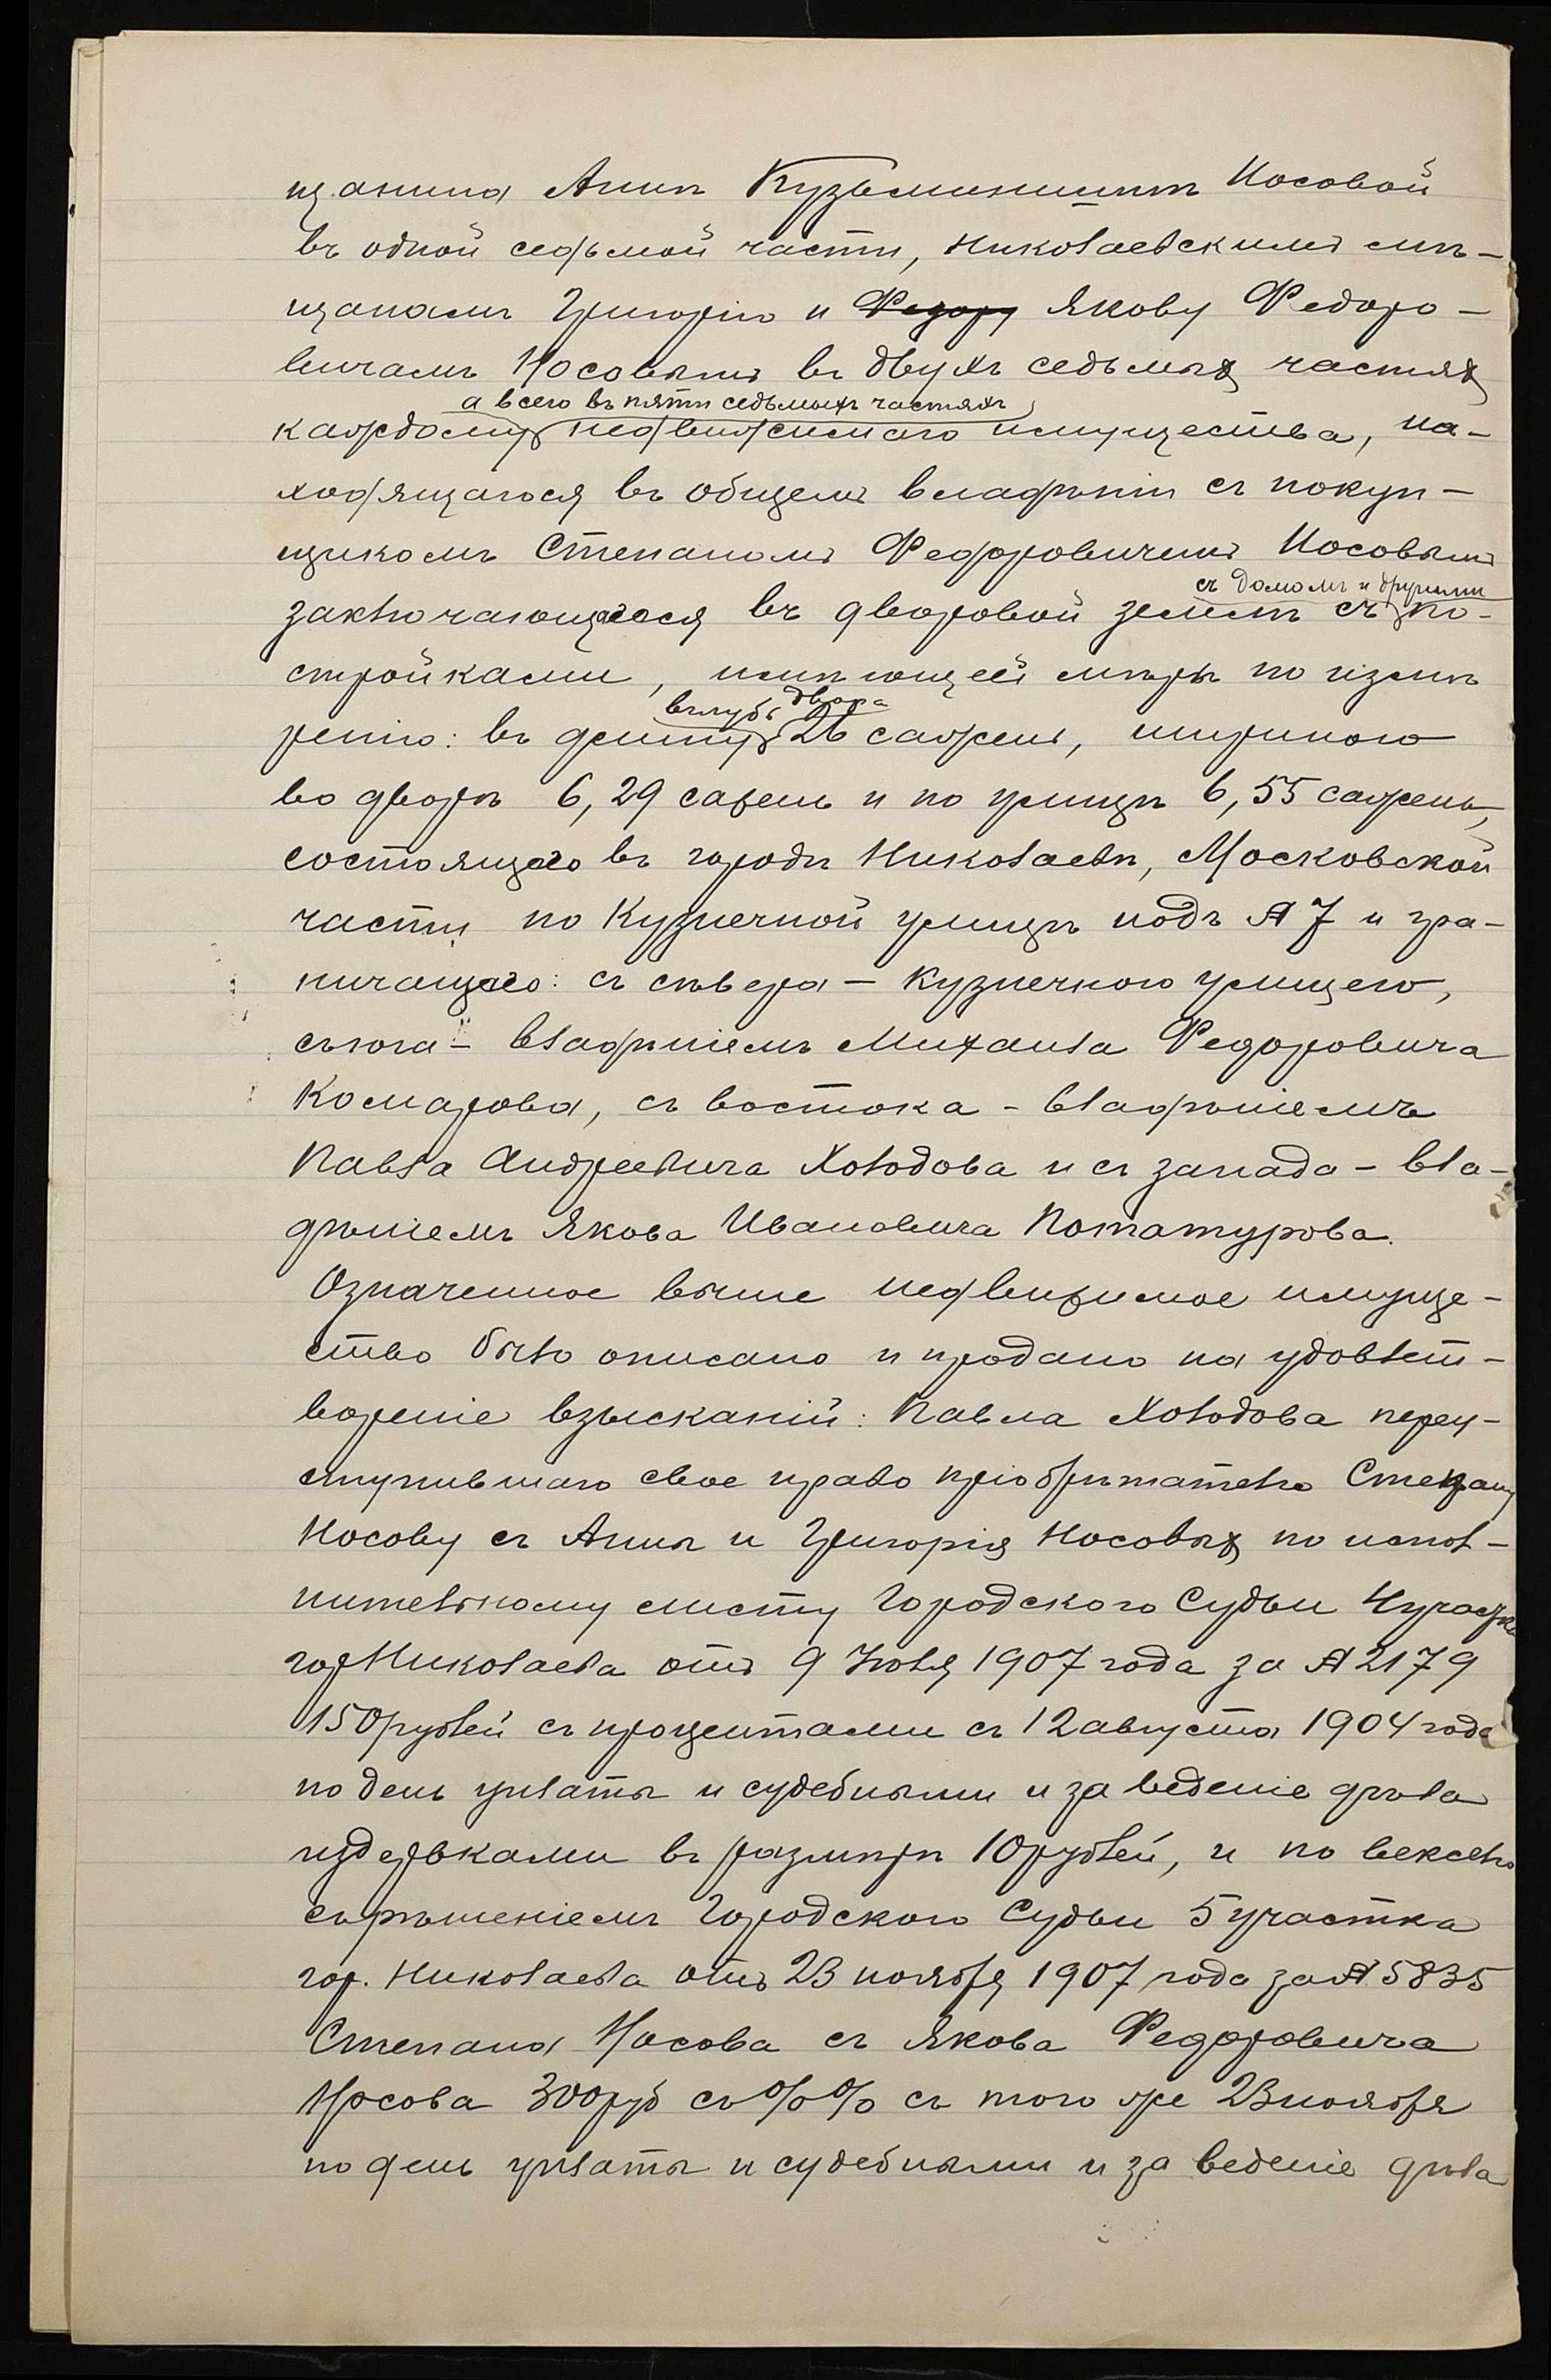 щанина Аннѣ Кузьминишнѣ Носовой
въ одной седьмой части, Николаевскимъ мѣ-
щанамъ Григорію и Федору Якову Федоро-
вичамъ Носовымъ въ двухъ седьмыхъ частяхъ
а всего въ пяти седьмыхъ частяхъ
каждому недвижимаго имущества, на-
ходящагося въ общемъ владѣніи съ покуп-
щикомъ Степаномъ Федоровичемъ Носовымъ
съ домомъ и другими
заключающагося въ дворовой землѣ съ по-
стройками, имѣющей мѣры по измѣ
вглубь двора
ренію: въ длину 26 сажень, шириною
во дворѣ 6,29 сажень и по улицѣ 6,55 сажень,
состоящаго въ городѣ Николаевѣ, Московской
части по Кузнечной улицѣ подъ № 7 и гра-
ничащаго: съ сѣвера - Кузнечною улицею,
съ юга - владѣніемъ Михаила Федоровича
Комарова, съ востока - владѣніемъ
Павла Андреевича Холодова и съ запада - вла-
дѣніемъ Якова Ивановича Потатурова.
Означенное выше недвижимое имуще-
ство было описано и продано на удовлет-
вореніе взысканій: Павла Холодова переу-
ступившаго свое право пріобрѣтателю Степану
Носову съ Анны и Григорія Носовыхъ по испол-
нительному листу Городского Судьи 4 участка
гор Николаева отъ 9 Іюля 1907 года за № 2179
150 рублей съ процентами съ 12 августа 1904 года
по день уплаты и судебными и за веденіе дѣла
издержками въ размѣрѣ 10 рублей, и по векселю
съ рѣшеніемъ Городского Судьи 5 участка
гор. Николаева отъ 23 ноября 1907 года за № 5835
Степана Носова съ Якова Федоровича
Носова 300 руб съ %% съ того же 23 ноября
по день уплаты и судебными и за веденіе дѣла